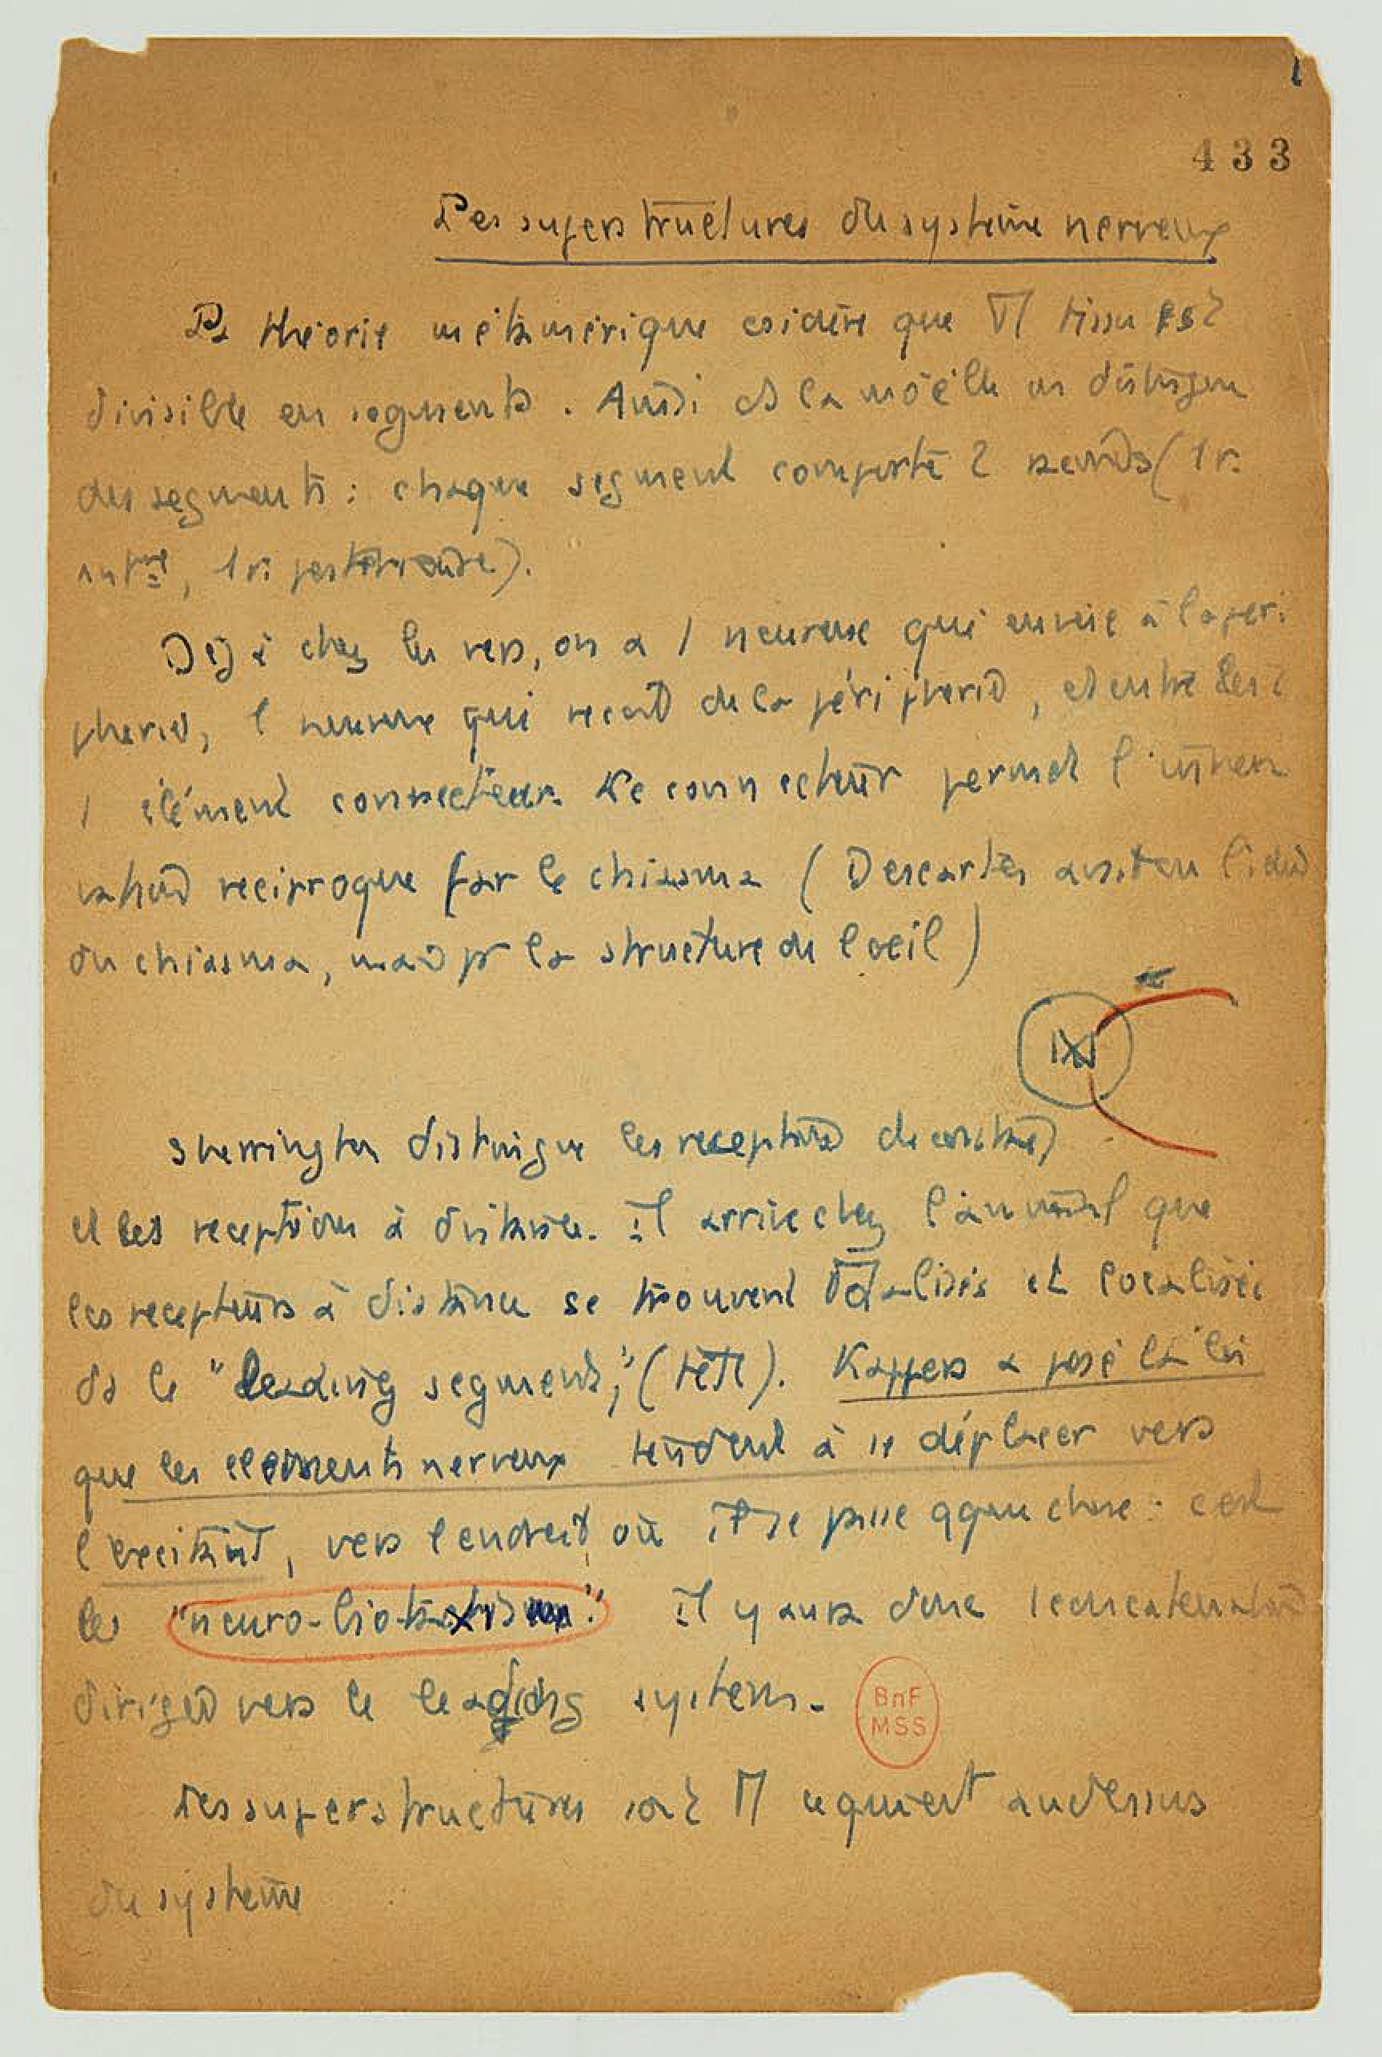 1
433
Les superstructures du système nerveux
La théorie métamérique csidère que Π tissu est
divisible en segments. Ainsi ds la moëlle on distingue
des segments : chaque segment comporte 2 racines (1 r.
antre, 1 r. postérieure).
Déjà chez les vers, on a 1 neurone qui envoie à la péri
phérie, 1 neurone qui reçoit de la périphérie, et entre les 2
1 élément connecteur. Le connecteur permet l'inner
vation réciproque par le chiasma (Descartes avait eu l'idée
du chiasma, mais pr la structure de l'oeil)
Sherrington distingue les récepteurs de contact
et les récepteurs à distance. Il arrive chez l'animal que
les récepteurs à distance se trouvent et localisés
ds le "leading segment," (tête). Kappers a posé la loi
que les éléments nerveux tendent à se déplacer vers
l'excitant, vers l'endroit où il se passe qque chose : c'est
le "neuro-biotaxisme". Il y aura donc 1 concaténation
dirigée vers le leading system.
BnF
MSS
Les superstructures sont Π ce qui est au dessus
du système